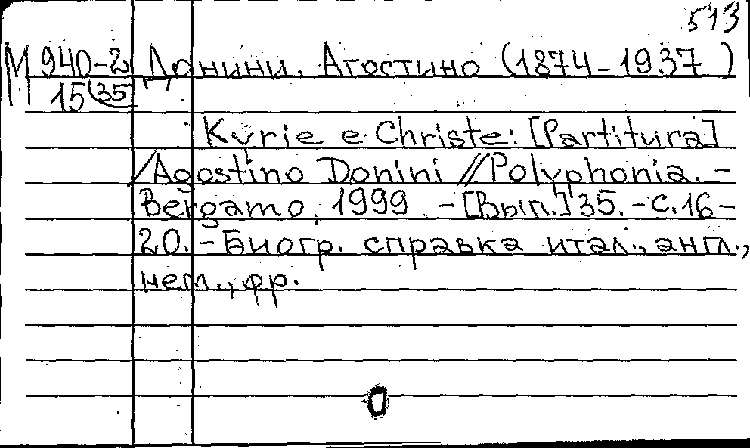 513
М 940-2 Донини, Агостино (1874-1937)
15(35)
Kyrie e Christe: [Partitura]
/Agostino Donini //Polyphonia. -
Bergamo, 1999. - [Вып.] 35. - С. 16-
20. - Биогр. справка итал., англ.,
нем., фр.